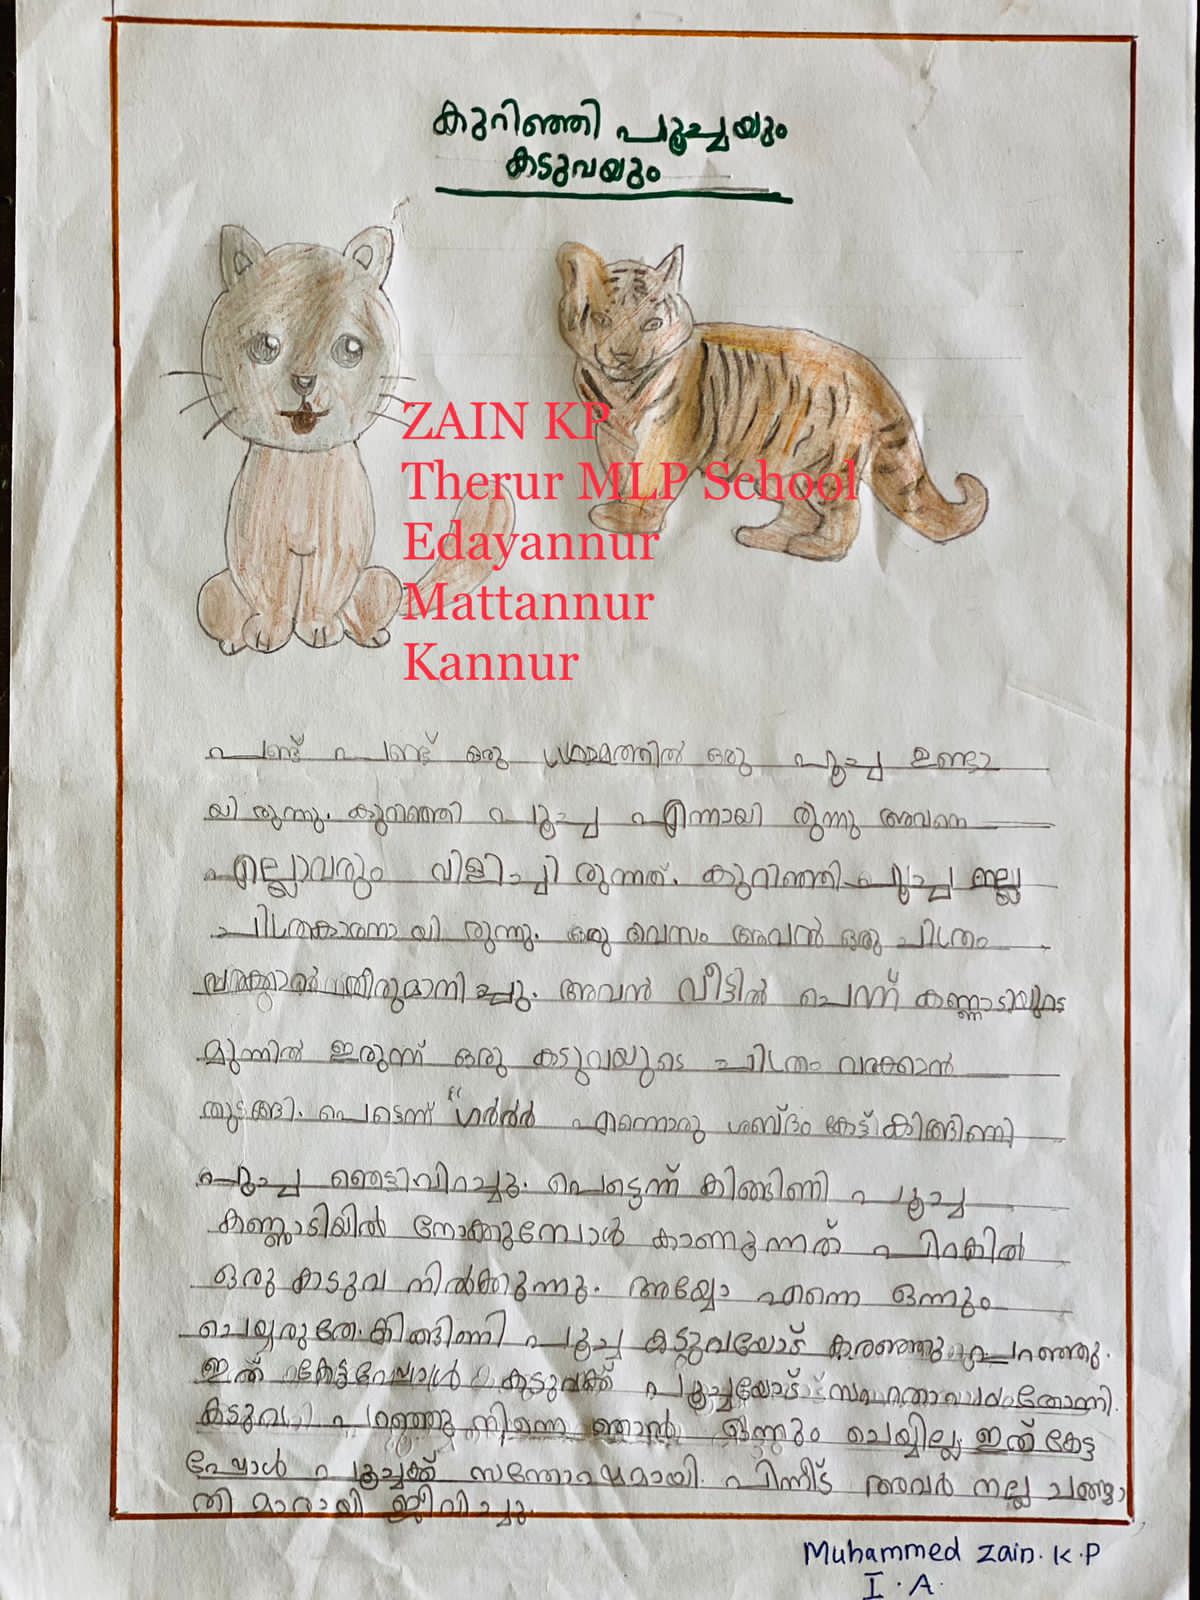 കുറിഞ്ഞി പൂച്ചയും
കടുവയും
ZAIN KP
Therur MLP School
Edayannur
Mattannur
Kannur
പണ്ട് പണ്ട് ഒരു ഗ്രാമത്തിൽ ഒരു പൂച്ച ഉണ്ടാ
യിരുന്നു. കുറിഞ്ഞി പൂച്ച എന്നായിരുന്നു അവനെ
എല്ലാവരും വിളിച്ചിരുന്നത്. കുറിഞ്ഞി പൂച്ച നല്ല
ചിത്രകാരനായിരുന്നു. ഒരു ദിവസം അവൻ ഒരു ചിത്രം
വരക്കാൻ തീരുമാനിച്ചു. അവൻ വീട്ടിൽ ചെന്ന് കണ്ണാടിയുടെ
മുന്നിൽ ഇരുന്ന് ഒരു കടുവയുടെ ചിത്രം വരക്കാൻ
തുടങ്ങി. പെടെന്ന് "ഗർർർ എന്നൊരു ശബ്ദം കേട്ട് കിങ്ങിണി
പൂച്ച ഞെട്ടിവിറച്ചു. പെട്ടെന്ന് കിങ്ങിണി പൂച്ച
കണ്ണാടിയിൽ നോക്കുമ്പോൾ കാണുന്നത് പിറകിൽ
ഒരു കടുവ നിൽക്കുന്നു. അയ്യോ എന്നെ ഒന്നും
ചെയ്യരുതേ. കിങ്ങിണി പൂച്ച കടുവയോട് കരഞ്ഞു പറഞ്ഞു.
ഇത് കേട്ടപ്പോൾ കടുവക്ക് പൂച്ചയോട് സഹതാപം തോന്നി.
കടുവ പറഞ്ഞു നിന്നെ ഞാൻ ഒന്നും ചെയ്യില്ല. ഇത് കേട്ട
പ്പോൾ പൂച്ചക്ക് സന്തോഷമായി. പിന്നീട് അവർ നല്ല ചങ്ങാ
തിമാരായി ജീവിച്ചു.
Muhammed Zain. K.P
I. A.